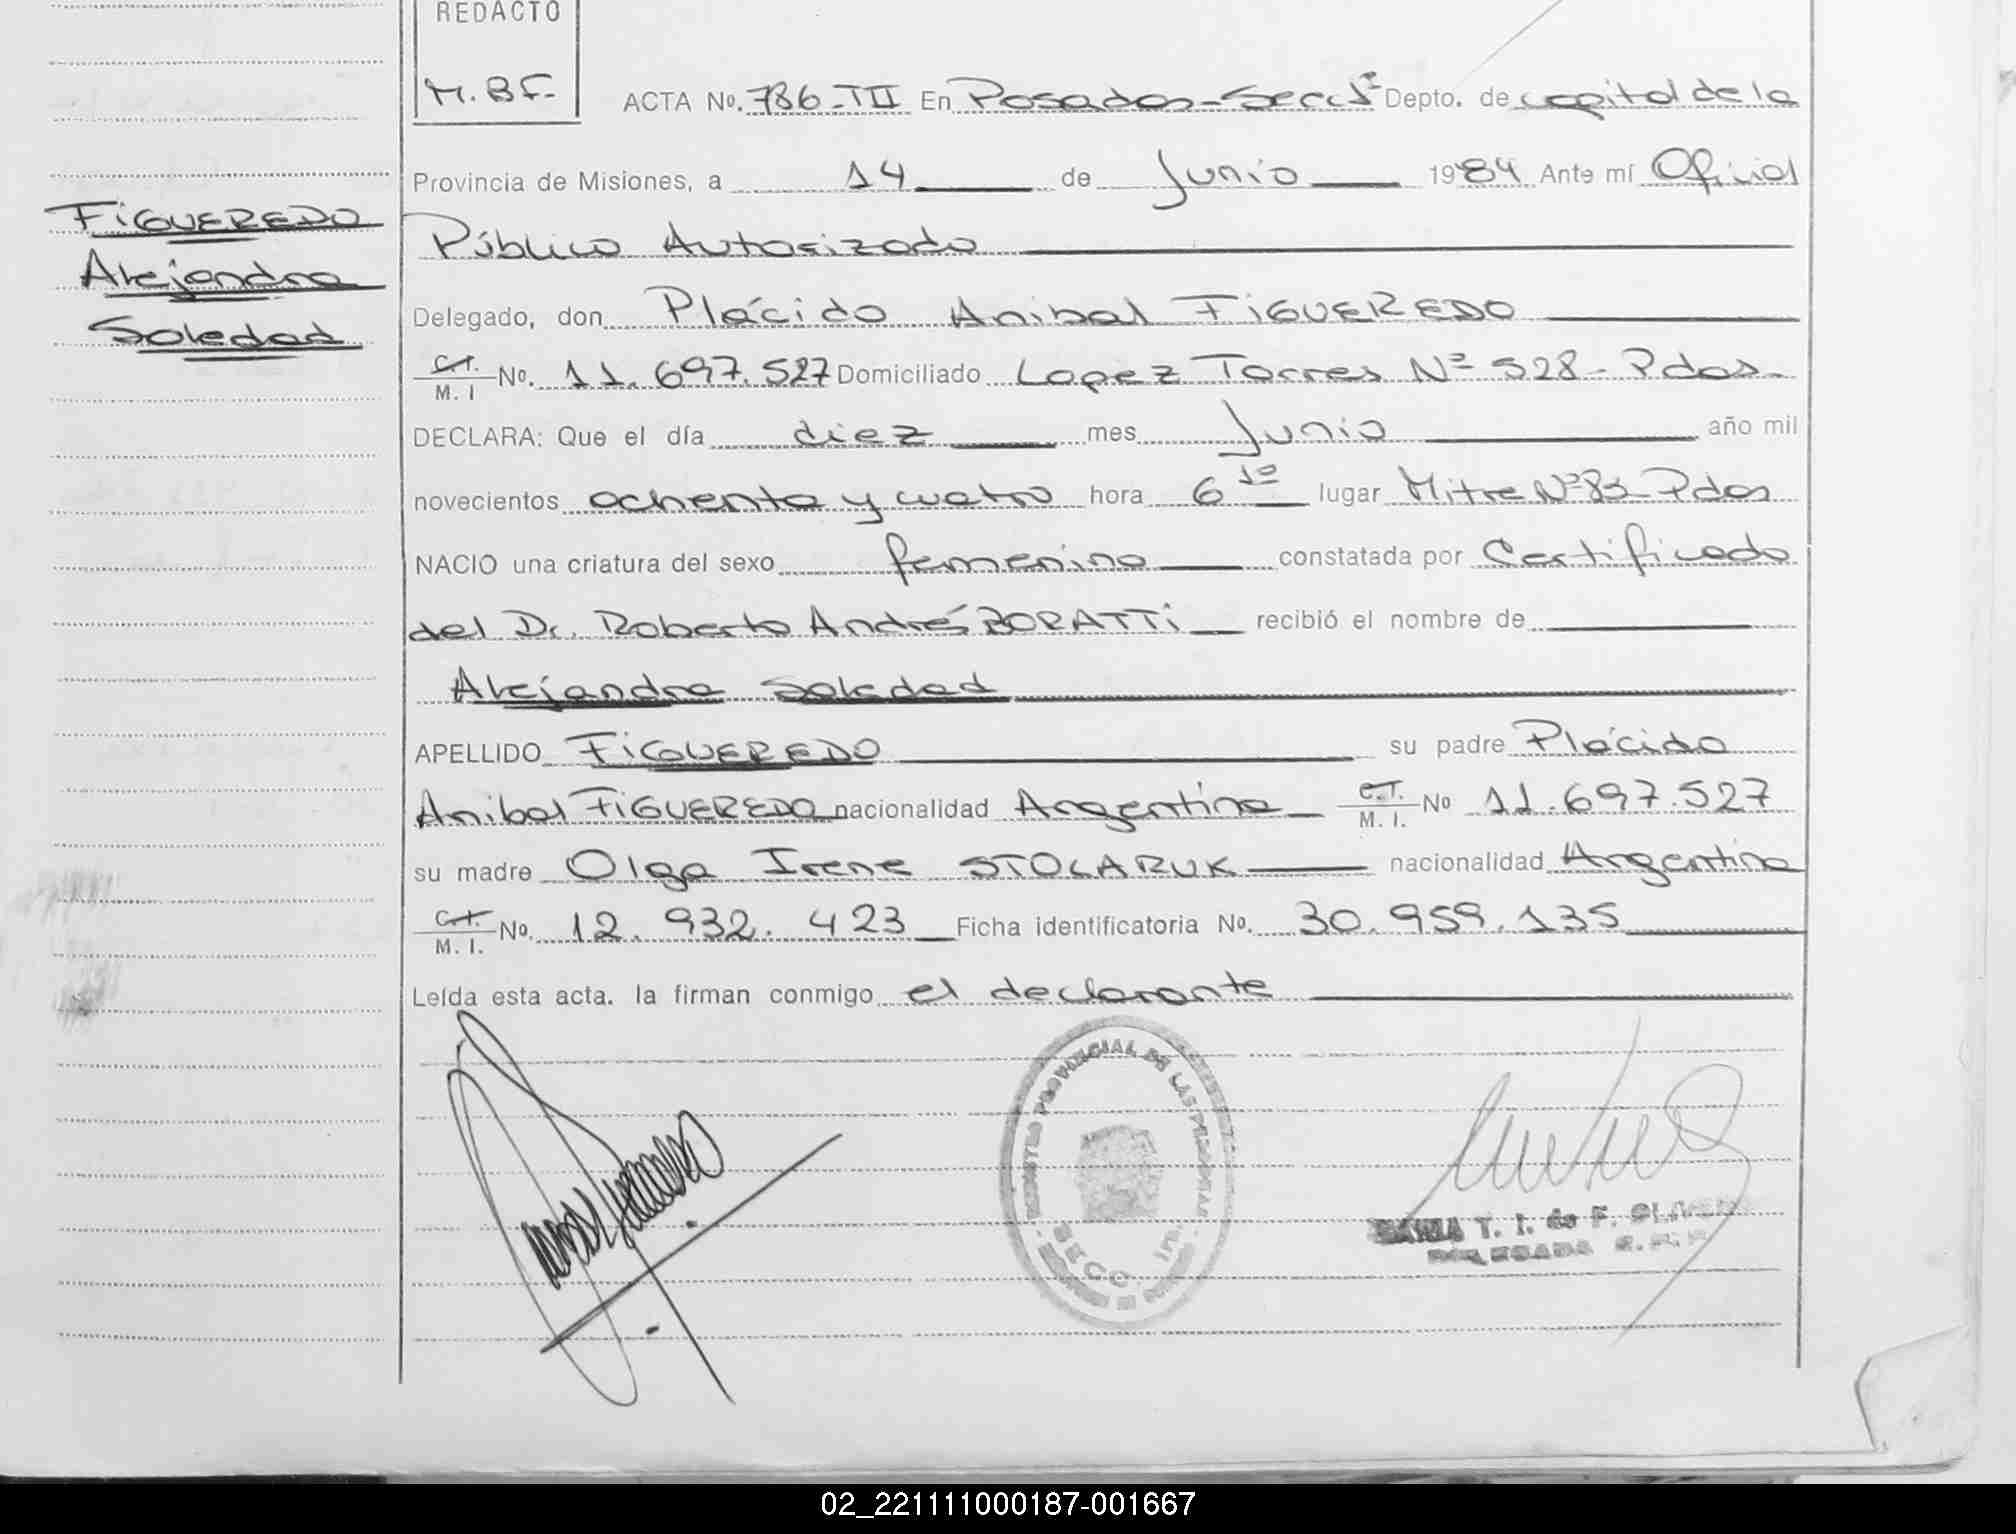 REDACTO
M.BF.
ACTA No. 786-TII En Posadas-Secc 1ª Depto. de capital de la
Provincia de Misiones, a 14 de Junio 1984 Ante mí Oficial
Público Autorizado
FIGUEREDO
Alejandra
Soledad
Delegado, don Plácido Anibal FIGUEREDO
C.I. M. I No. 11.697.527 Domiciliado Lopez Torres Nº 528-Pdas-
DECLARA: Que el día diez mes Junio año mil
novecientos ochenta y cuatro hora 6 10 lugar Mitre Nº 83-Pdas
NACIO una criatura del sexo femenino constatada por Certificado
del Dr. Roberto Andrés BORATTI recibió el nombre de
Alejandra Soledad
APELLIDO FIGUEREDO su padre Plácido
Anibal FIGUEREDO nacionalidad Argentina C.I. M. I. No 11.697.527
su madre Olga Irene STOLARUK nacionalidad Argentina
C.I. M. I. No. 12.932.423 Ficha identificatoria No. 30.959.135
Leída esta acta. la firman conmigo el declarante
REGISTRO PROVINCIAL DE LAS PERSONAS
SECC. 1ra.
MARIA T. I. de F.
DELEGADA
02_221111000187-001667